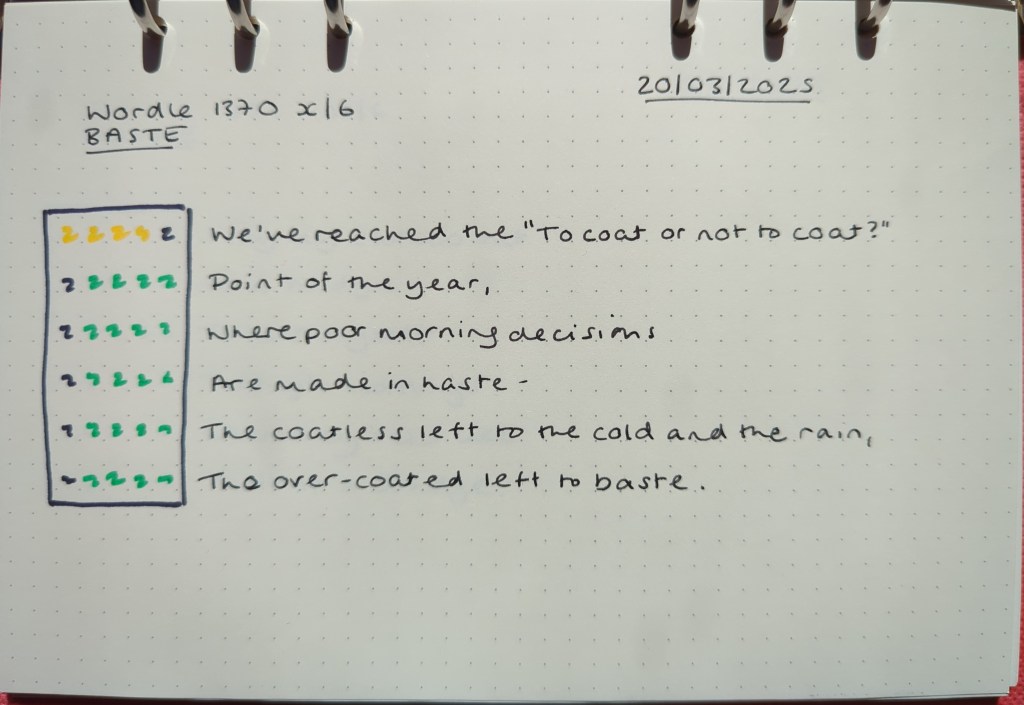 20/03/2025
Wordle 1370 x/6
BASTE
We've reached the "To coat or not to coat?"
Point of the year,
Where poor morning decisions
Are made in haste -
The coatless left to the cold and the rain,
The over-coated left to baste.